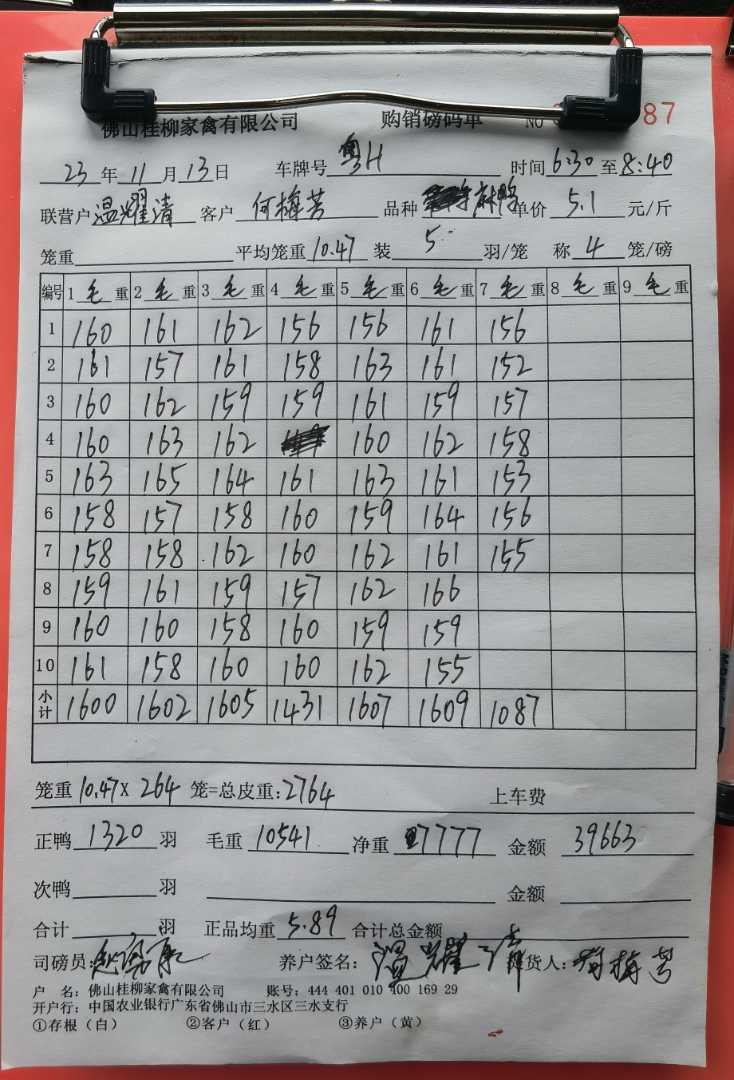 佛山桂柳家禽有限公司 购销磅码单 NO 87
23年11月13日 车牌号 粤H 时间6:30至8:40
联营户 温耀清 客户 何梅芳 品种 麻鸭 单价 5.1 元/斤
笼重 平均笼重10.47 装 5 羽/笼 称 4 笼/磅
编号 1 毛 重 2 毛 重 3 毛 重 4 毛 重 5 毛 重 6 毛 重 7 毛 重 8 毛 重 9 毛 重
1 160 161 162 156 156 161 156
2 161 157 161 158 163 161 152
3 160 162 159 159 161 159 157
4 160 163 162 160 162 158
5 163 165 164 161 163 161 153
6 158 157 158 160 159 164 156
7 158 158 162 160 162 161 155
8 159 161 159 157 162 166
9 160 160 158 160 159 159
10 161 158 160 160 162 155
小计 1600 1602 1605 1431 1607 1609 1087
笼重 10.47× 264 笼=总皮重:2764 上车费
正鸭 1320 羽 毛重 10541 净重 7777 金额 39663
次鸭 羽 金额
合计 羽 正品均重 5.89 合计总金额
司磅员: 养户签名: 温耀清 提货人: 何梅芳
户 名: 佛山桂柳家禽有限公司 账号: 444 401 010 400 169 29
开户行: 中国农业银行广东省佛山市三水区三水支行
①存根（白） ②客户（红） ③养户（黄）